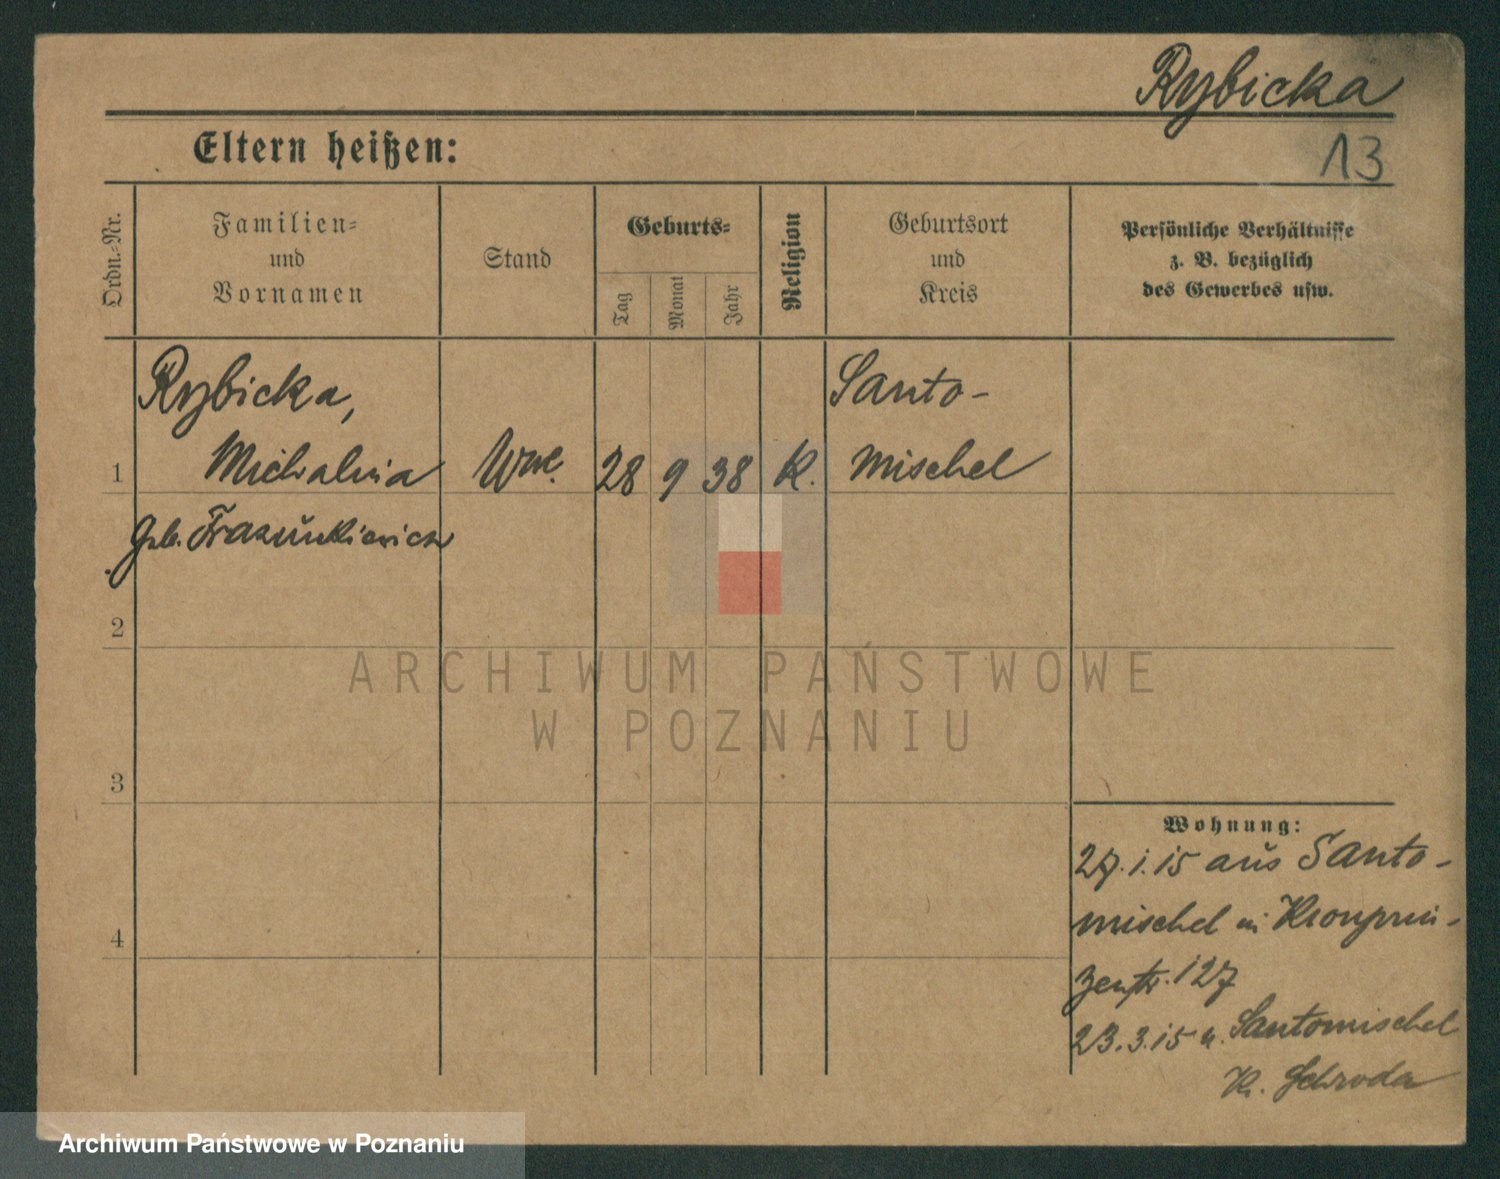 Rybicka
Eltern heißen:
13
Ordn.-Nr.
Familien-
und
Vornamen
Stand
Geburts-
Tag
Monat
Jahr
Religion
Geburtsort
und
Kreis
Persönliche Verhältnisse
z. B. bezüglich
des Gewerbes usw.
Rybicka,
Santo-
1 Michalina Wwe. 28 9 38 K. mischel
geb. Frasunkiewicz
2
ARCHIWUM PAŃSTWOWE
W POZNANIU
3
Wohnung:
27.1.15 aus Santo-
mischel in Kronprin-
4
zenstr. 127
23.3.15 n. Santomischel
K. Schroda
Archiwum Państwowe w Poznaniu